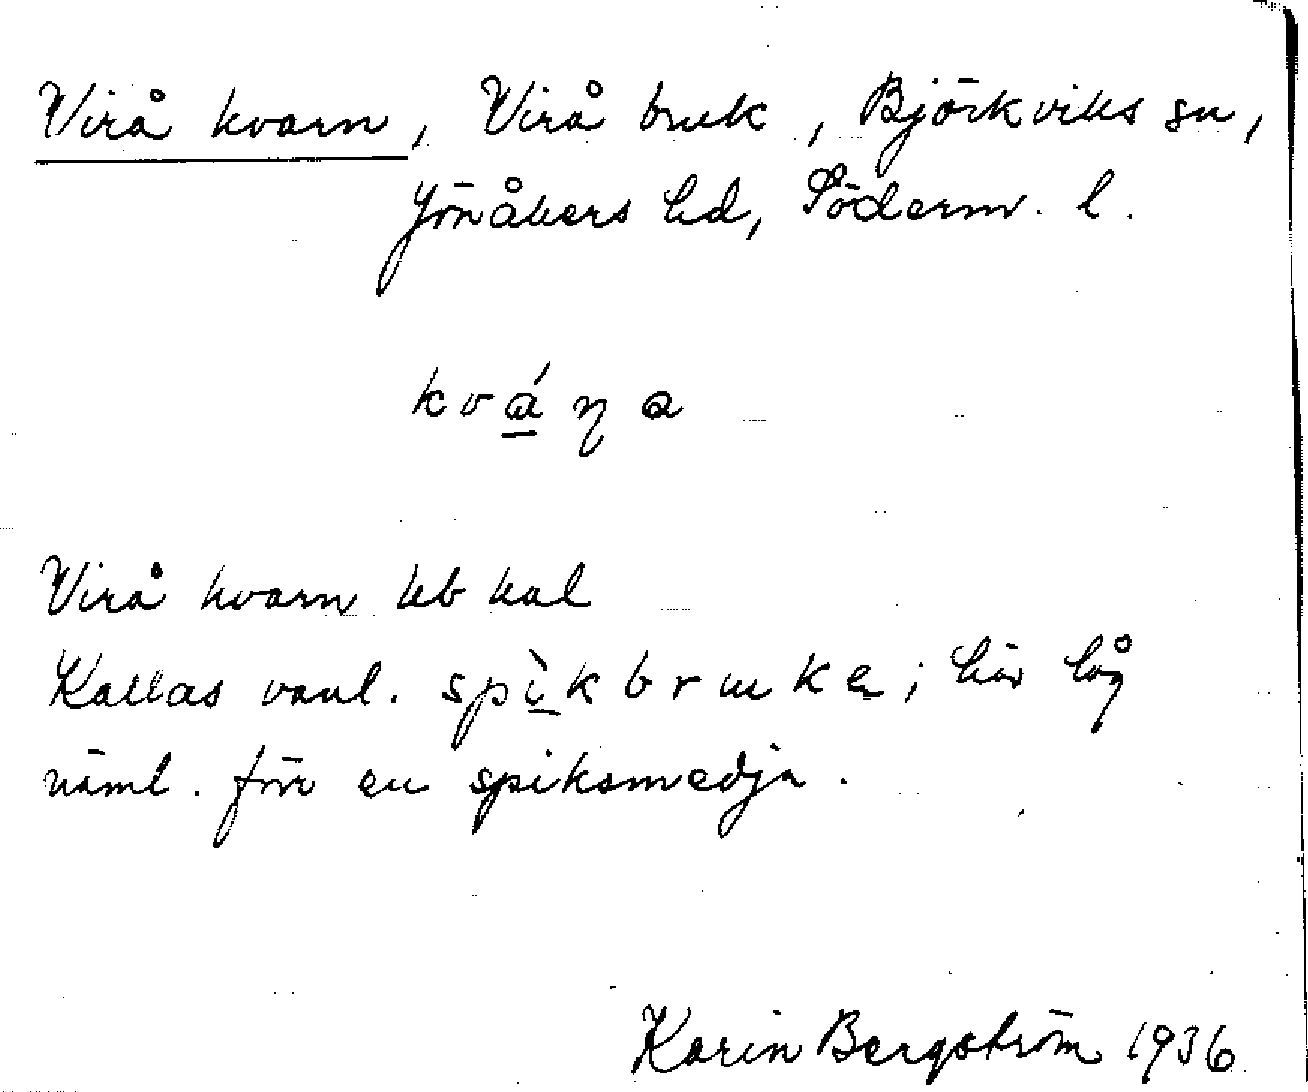 Virå kvarn, Virå bruk, Björkviks sn,
Jönåkers hd, Söderm. l.
kvá̱ɳa
Virå kvarn kb kal
Kallas vanl. spì̱kbruke; här låg
näml. förr en spiksmedja.
Karin Bergström 1936